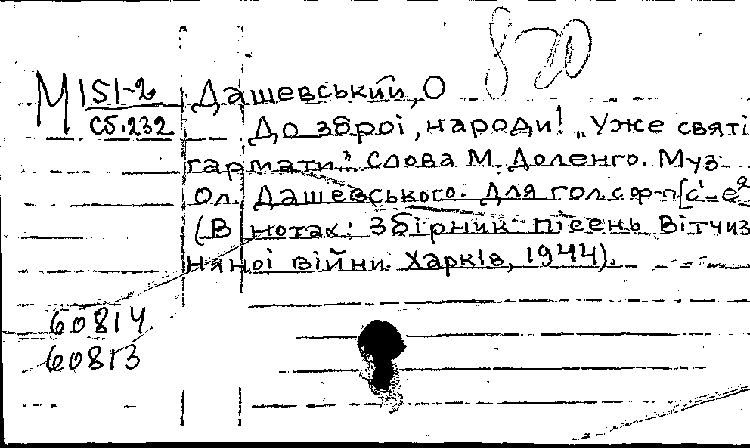 820
М 151-2 Дашевський, О
Сб.232 До зброї, народи! „Уже святі
гармати." Слова М. Доленго. Муз
Ол. Дашевського. Для гол. с ф-п [c¹-e²
(В нотах: Збірник пісень Вітчиз
няної війни. Харків, 1944).
60814
60813